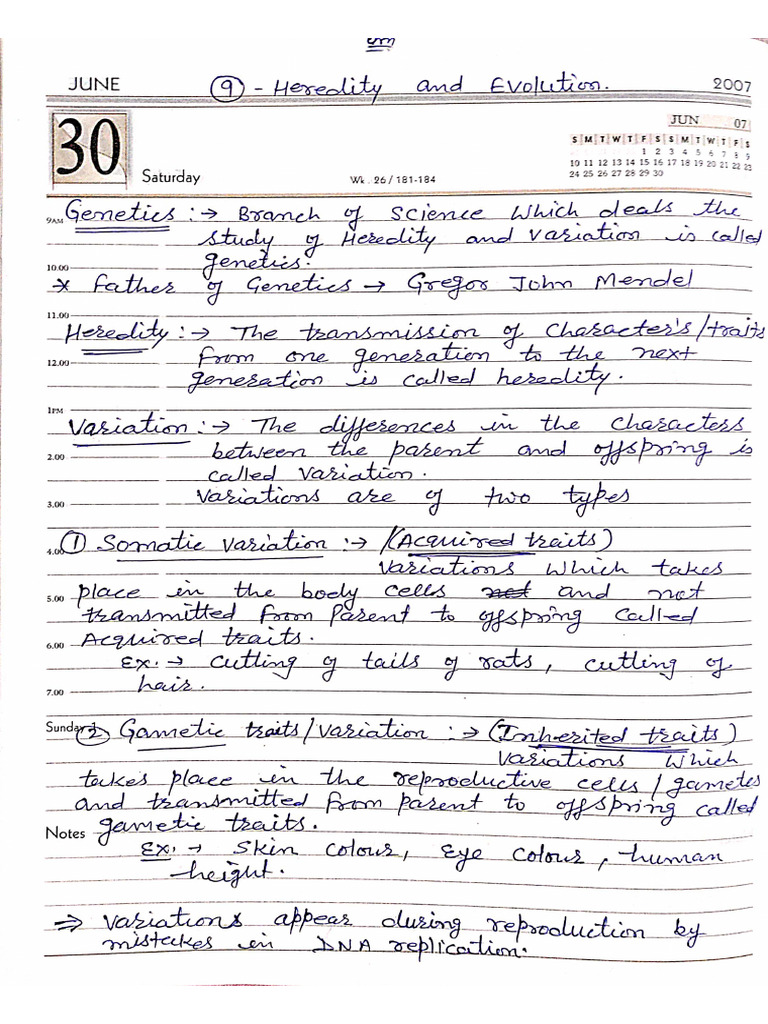 JUNE ⑨ - Heredity and Evolution. 2007
30
Saturday Wk. 26 / 181-184
JUN 07
S M T W T F S S M T W T F S
1 2 3 4 5 6 7 8 9
10 11 12 13 14 15 16 17 18 19 20 21 22 23
24 25 26 27 28 29 30
9AM Genetics :→ Branch of Science which deals the
study of Heredity and Variation is called
10.00 genetics.
* Father of Genetics → Gregor John Mendel
11.00
Heredity :→ The transmission of Character's/traits
12.00 from one generation to the next
generation is called heredity.
1PM
Variation :→ The differences in the characters
2.00 between the parent and offspring is
called Variation.
3.00 Variations are of two types
4.00 ① Somatic Variation :→ (Acquired traits)
Variations which takes
5.00 place in the body cells not and not
transmitted from Parent to offspring called
6.00 Acquired traits.
Ex. → Cutting of tails of rats, cutting of
7.00 hair.
Sunday 1 ② Gametic traits/Variation :→ (Inherited traits)
Variations which
takes place in the reproductive cells/gametes
and transmitted from parent to offspring called
Notes gametic traits.
Ex. → Skin colour, Eye colour, human
height.
⇒ Variations appear during reproduction by
mistakes in DNA replication.